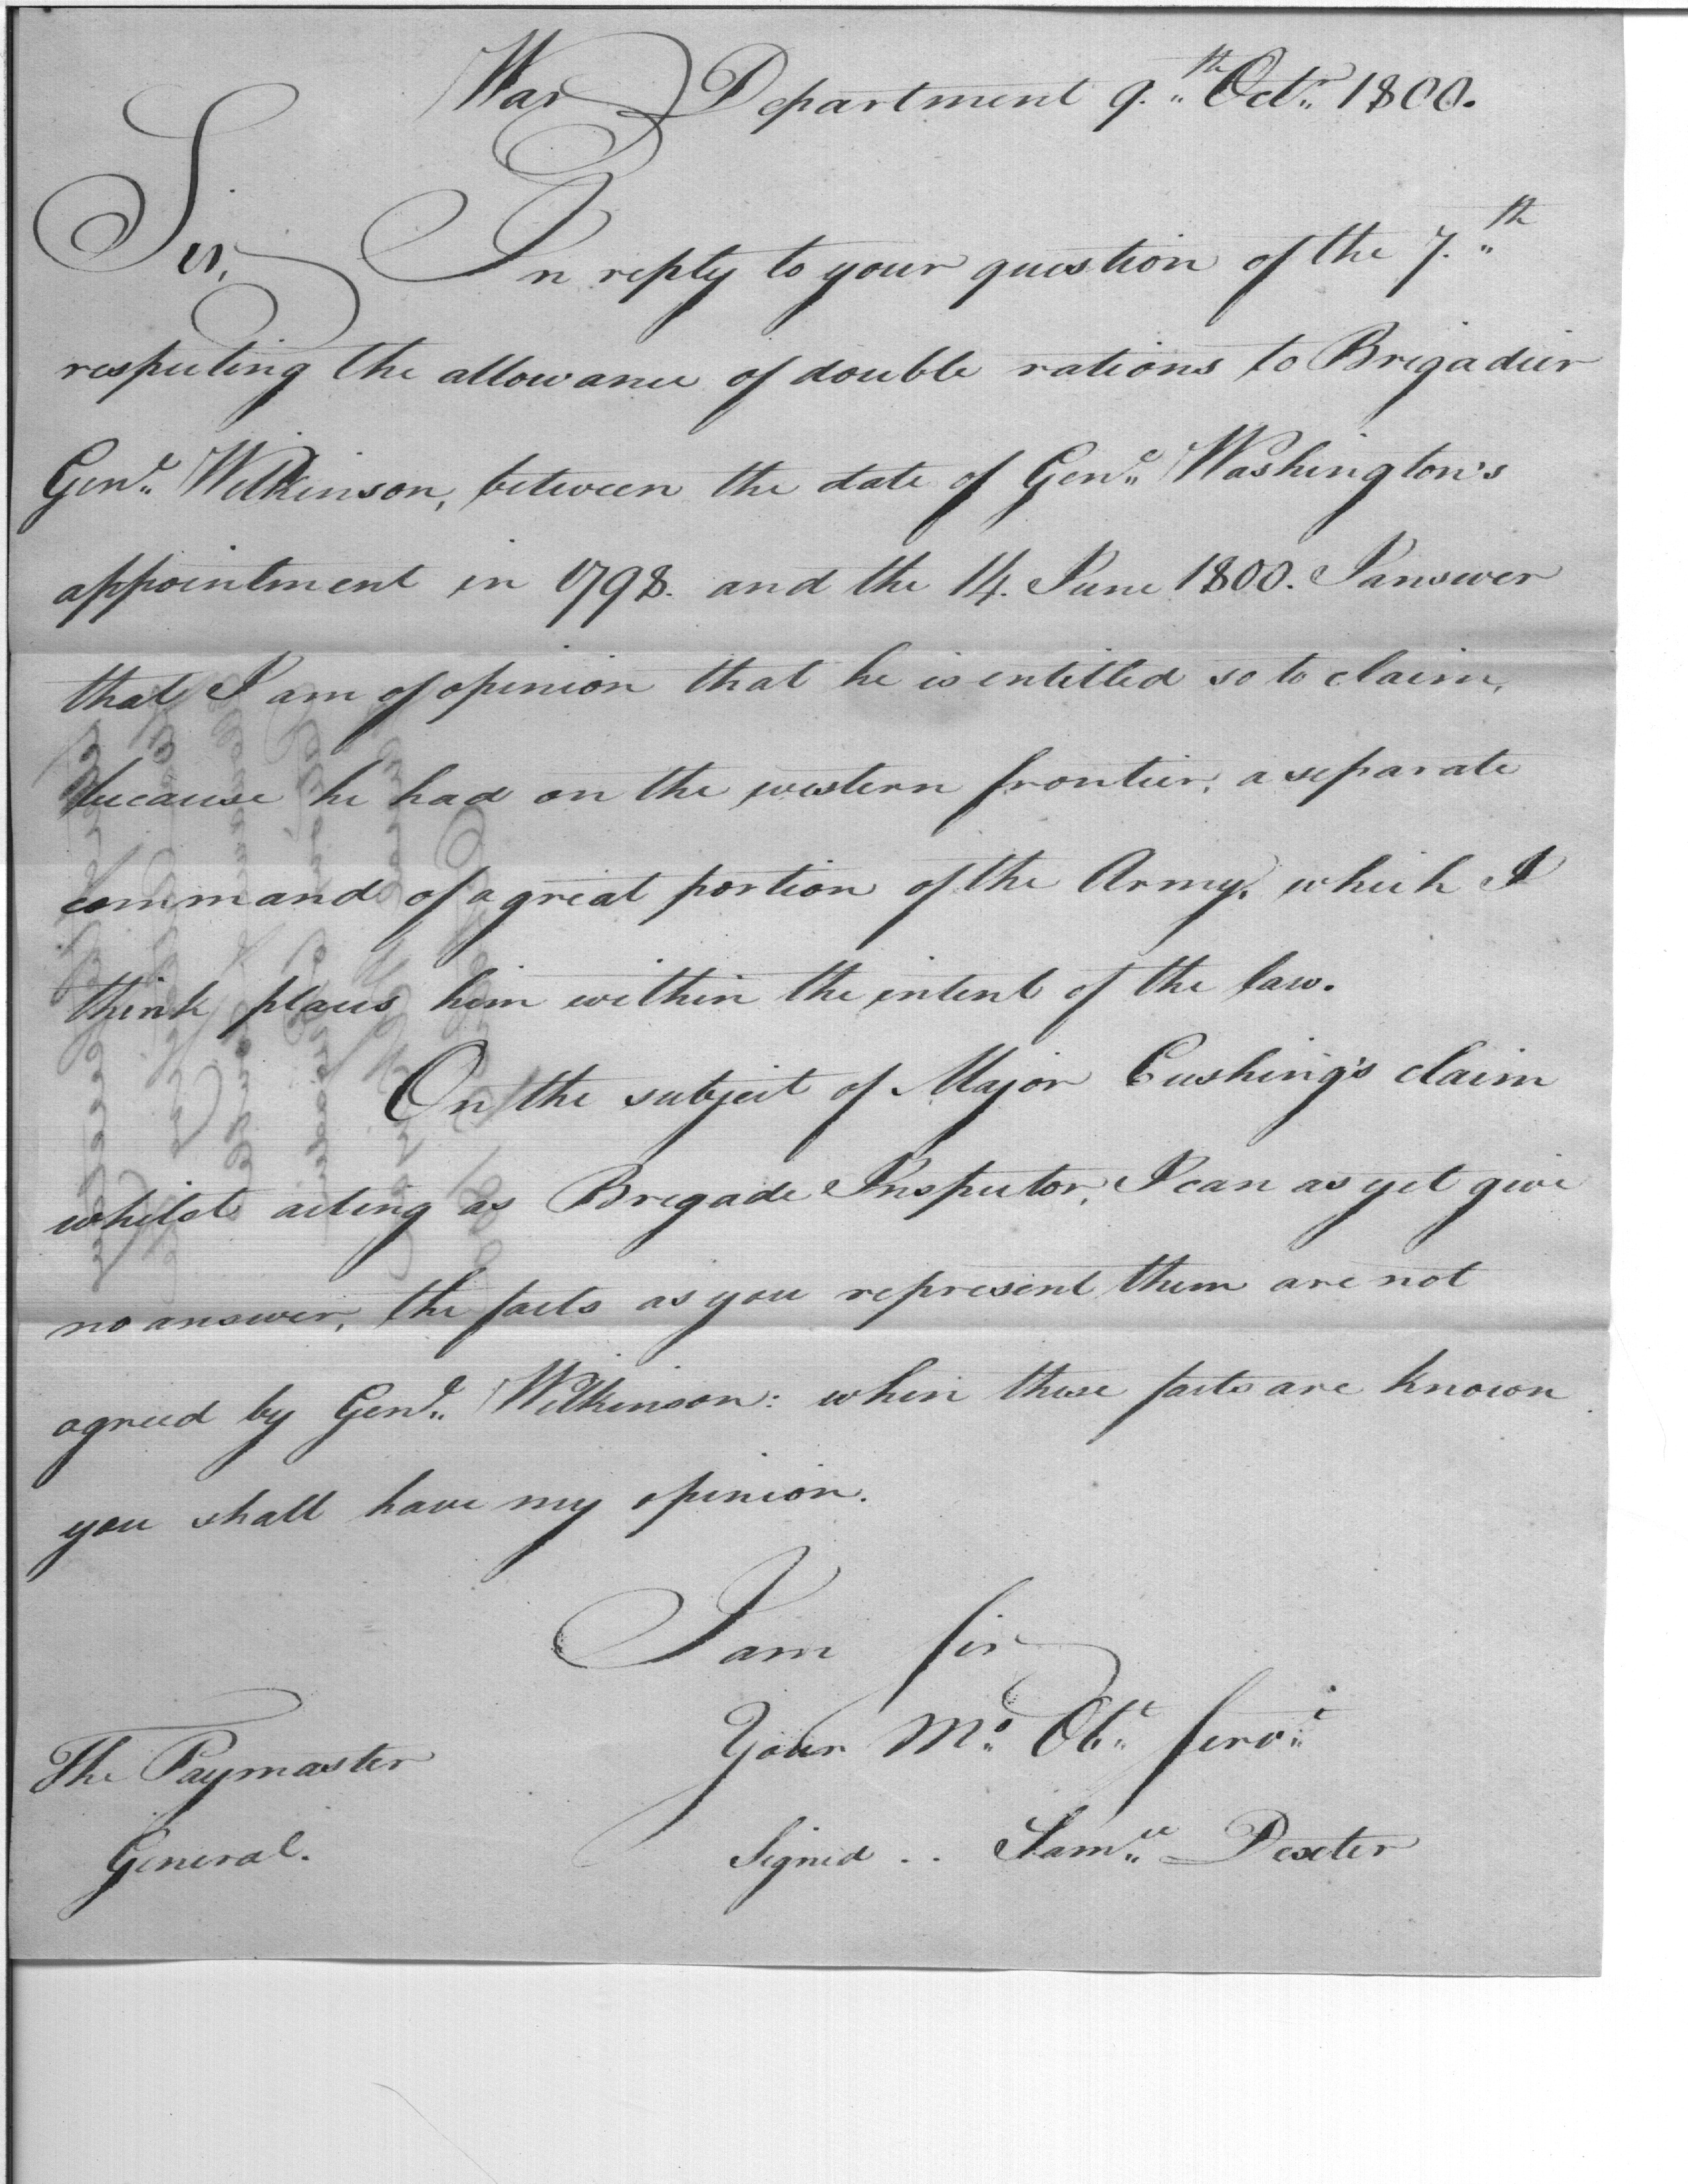 War Department 9.th Octr. 1800.
Sir,
In reply to your question of the 7.th
respecting the allowance of double rations to Brigadier
Genl. Wilkinson, between the date of Genl. Washington's
appointment in 1798. and the 14. June 1800. I answer
that I am of opinion that he is entitled so to claim,
because he had on the western frontier, a separate
command of a great portion of the Army, which I
think places him within the intent of the law.
On the subject of Major Cushing's claim
whilst acting as Brigade Inspector, I can as yet give
no answer, the facts as you represent them are not
agreed by Genl. Wilkinson: when these facts are known
you shall have my opinion.
I am Sir
Your Mo. Obt. Servt.
Signed .. Saml. Dexter
The Paymaster
General.